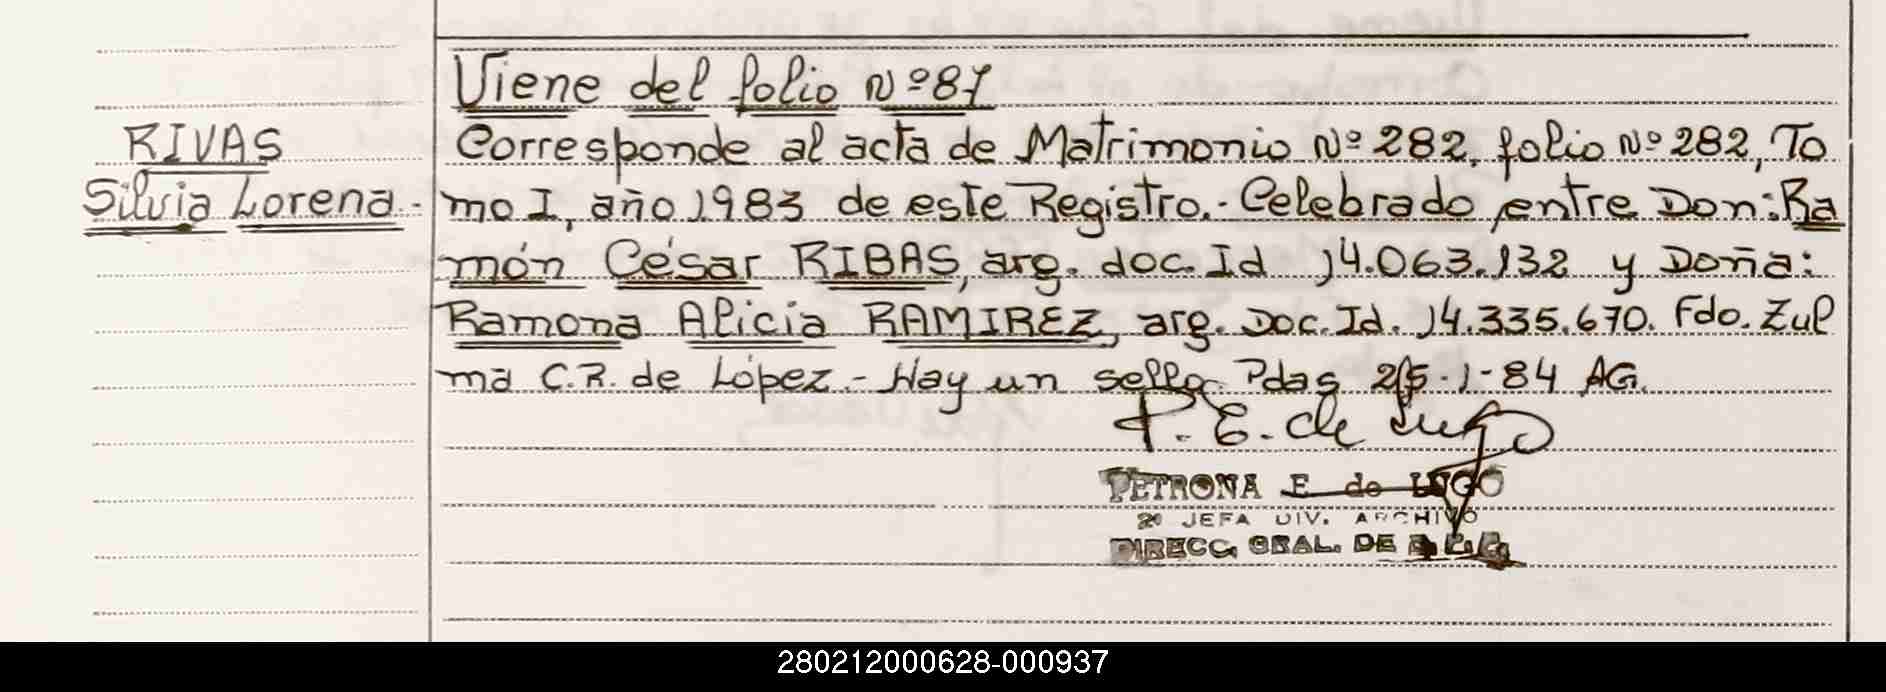 Viene del folio Nº 87
RIVAS
Silvia Lorena.-
Corresponde al acta de Matrimonio Nº 282, folio Nº 282, To
mo I, año 1983 de este Registro.- Celebrado entre Don: Ra
món César RIBAS, arg. doc. Id 14.063.132 y Doña:
Ramona Alicia RAMIREZ, arg. Doc. Id. 14.335.670. Fdo. Zul
ma C.R. de López.- Hay un sello. Pdas -1-84 AG.
P. E. de Lugo
PETRONA E. de LUGO
2º JEFA DIV. ARCHIVO
DIRECC. GRAL. DE
280212000628-000937